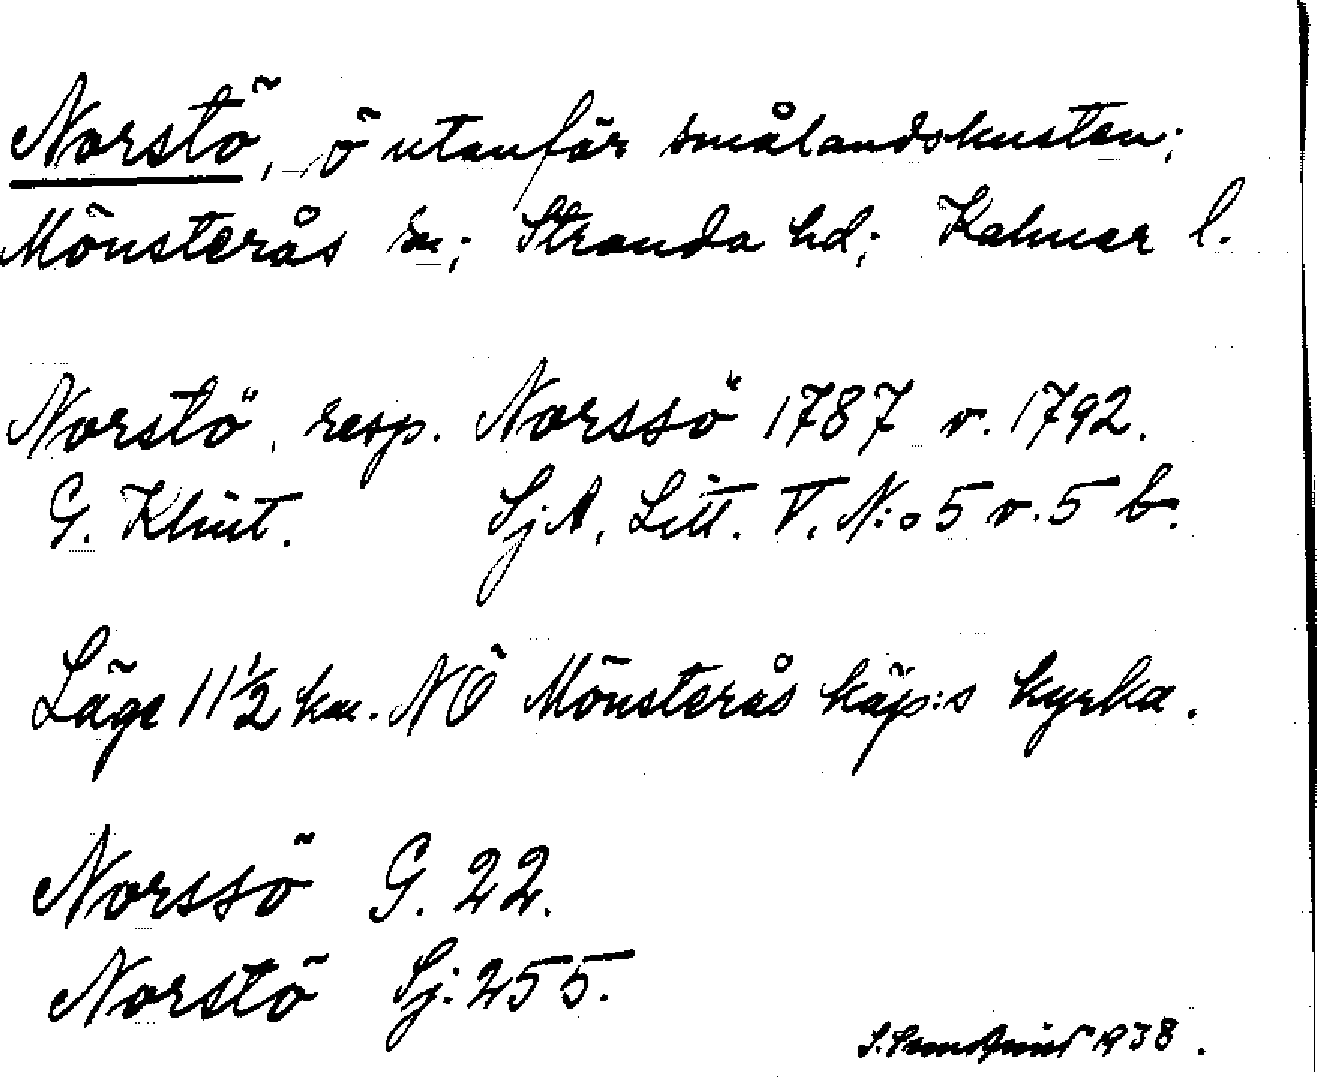 Norstö, ö utanför smålandskusten;
Mönsterås sn; Stranda hd; Kalmar l.
Norstö, resp. Norssö 1787 o. 1792.
G. Klint. SjA, Litt. V, N:o 5 o. 5 b.
Läge 11½ km. NÖ Mönsterås köp:s kyrka.
Norssö G. 22.
Norstö Sj. 255.
1938.